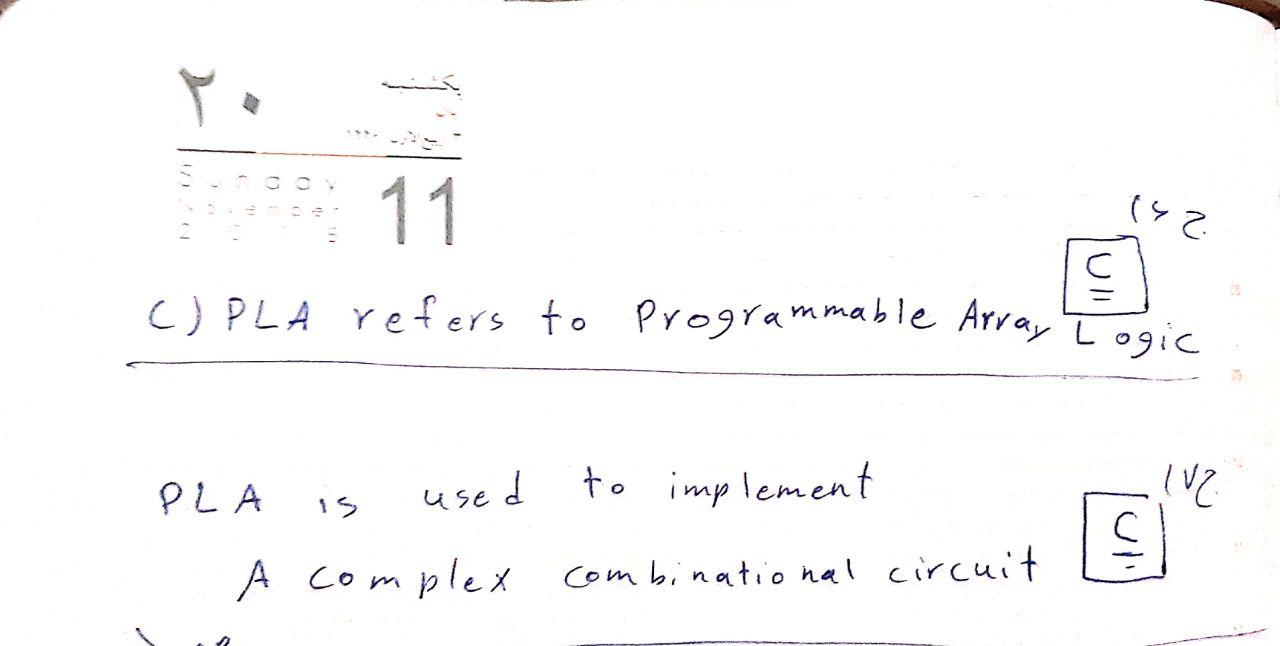 ۲۰
یکشنبه
Sunday
November
2018
11
C) PLA refers to Programmable Array Logic
C
PLA is used to implement
C
A complex combinational circuit